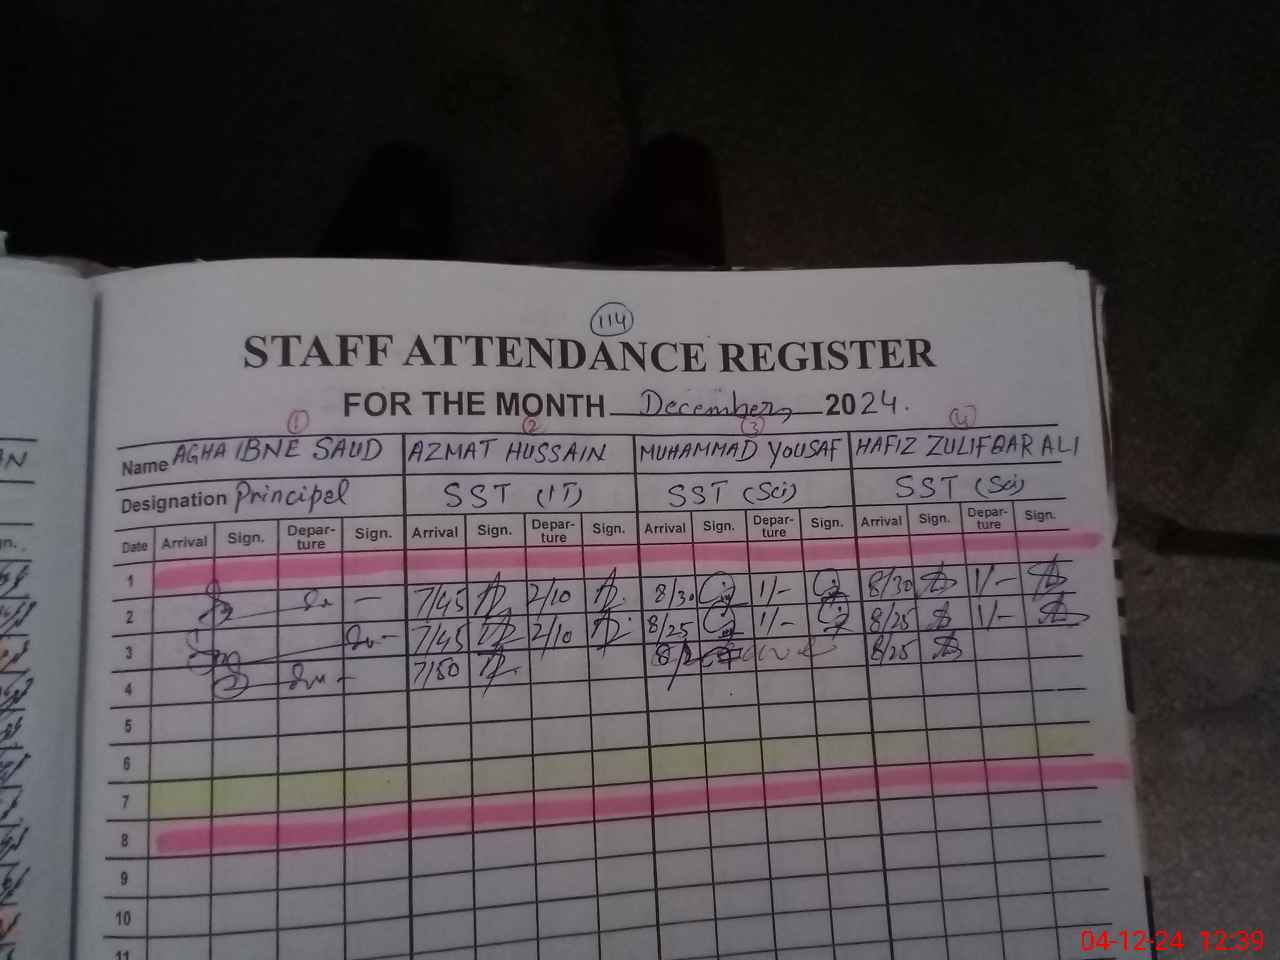 114
STAFF ATTENDANCE REGISTER
FOR THE MONTH December, 2024.
1 2 3 4
Name AGHA IBNE SAUD AZMAT HUSSAIN MUHAMMAD YOUSAF HAFIZ ZULIFQAR ALI
Designation Principel SST (IT) SST (Sci) SST (Sci)
Date Arrival Sign. Depar-ture Sign. Arrival Sign. Depar-ture Sign. Arrival Sign. Depar-ture Sign. Arrival Sign. Depar-ture Sign.
1
2 7/45 2/10 8/30 1/- 8/30 1/-
3 7/45 2/10 8/25 1/- 8/25 1/-
4 7/50 8/25
5
6
7
8
9
10
11
04-12-24 12:39